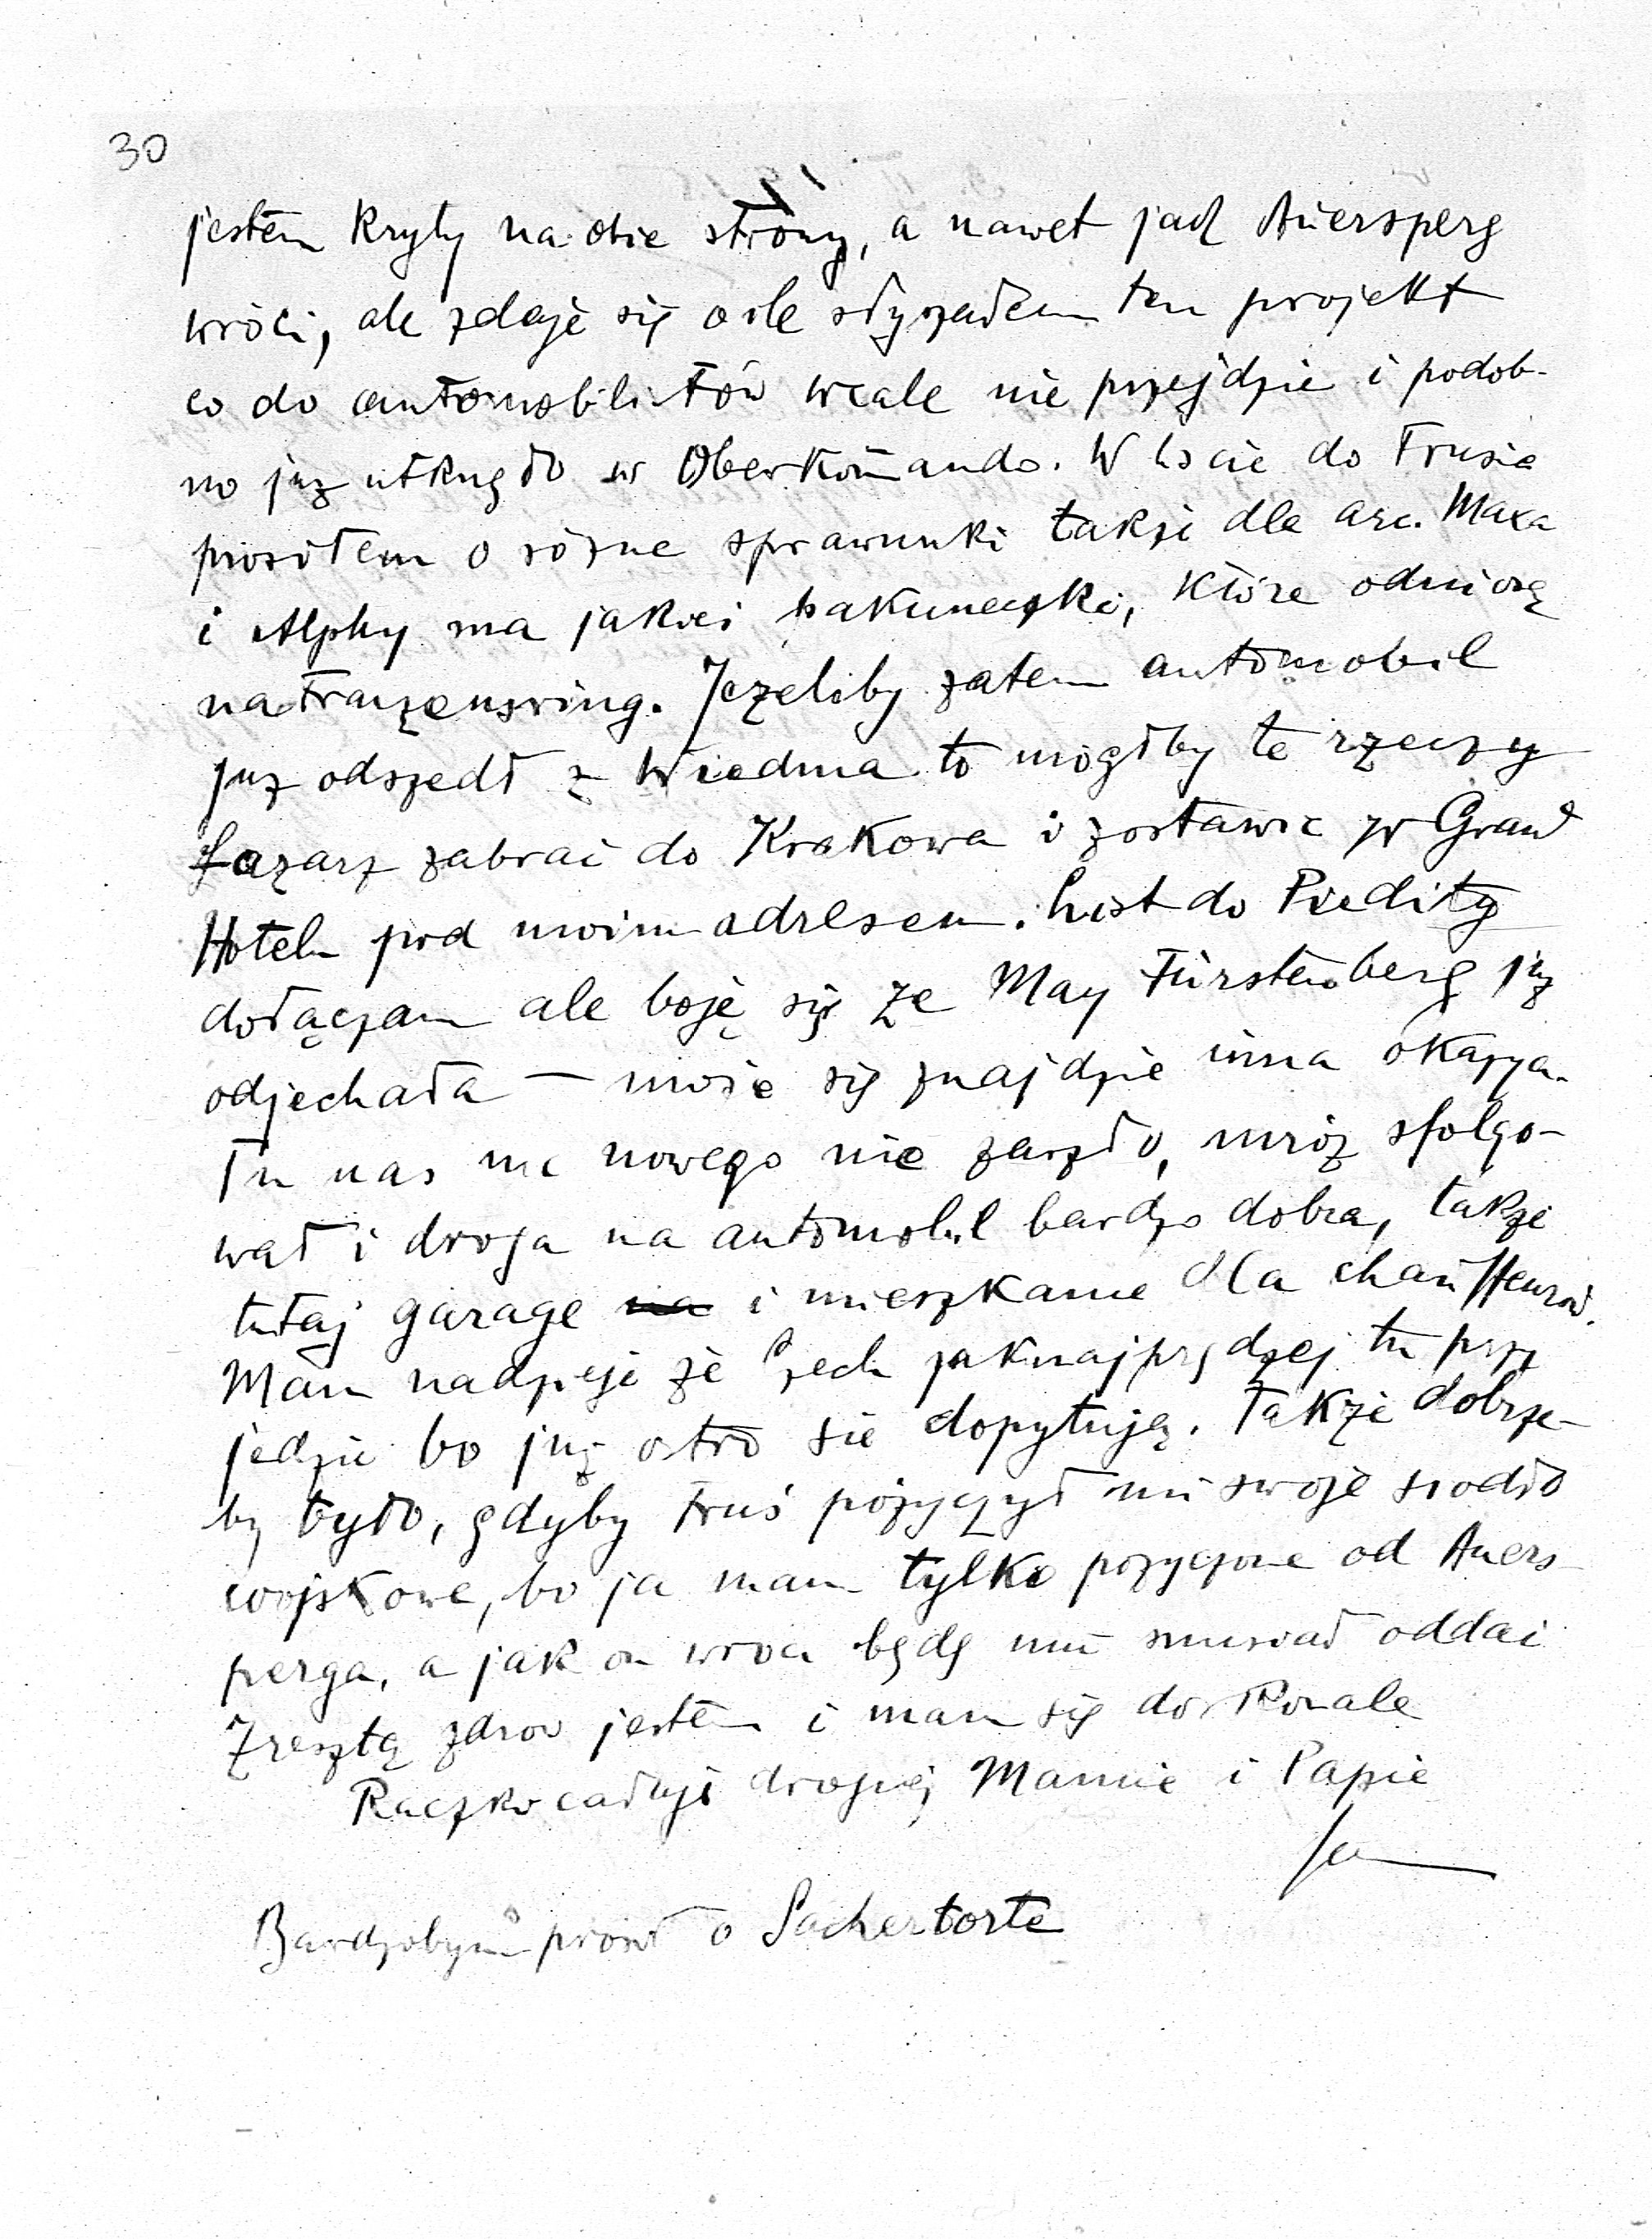 30
jestem kryty na obie strony, a nawet jak Auersperg
wróci, ale zdaje się o ile słyszałem ten projekt
co do automobilistów wcale nie przejdzie i podob-
no już utknęło w Oberkom̄ando. W liście do Frusia
prosiłem o różne sprawunki także dla arc. Maxa
i Alphy ma jakieś pakuneczki, które odniosą
na Franzensring. Jeżeliby zatem automobil
już odszedł z Wiednia to mógłby te rzeczy
Łazarz zabrać do Krakowa i zostawić w Grand
Hotelu pod moim adresem. List do Piedity
dołączam ale boję się że May Fürstenberg już
odjechała — może się znajdzie inna okazya.
Tu nas nic nowego nie zaszło, mróz sfolgo-
wał i droga na automobil bardzo dobra, także
tutaj garage na i mieszkanie dla chauffeurów.
Mam nadzieję że Zech jaknajprędzej tu przy
jedzie bo już ostro się dopytują. Także dobrze-
by było, gdyby Fruś pożyczył mi swoje siodło
wojskowe, bo ja mam tylko pożyczone od Auers-
perga, a jak on wróci będę mu musiał oddać
Zresztą zdrów jestem i mam się doskonale
Rączki całuję drogiej Mamie i Papie
Bardzobym prosił o Sachertorte